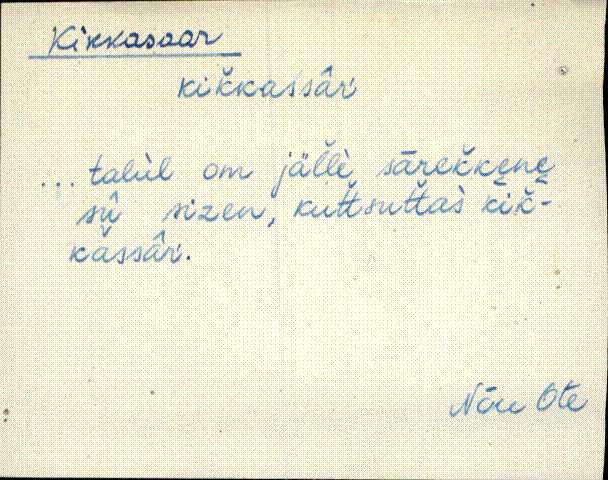 Kikkasaar
kik̆kassâr
... talùl om jäl̆lè sārek̆kęnę
sû sizen, kut̆tsut̆tas̀ kik̆-
kăssâr.
Nõu Ote